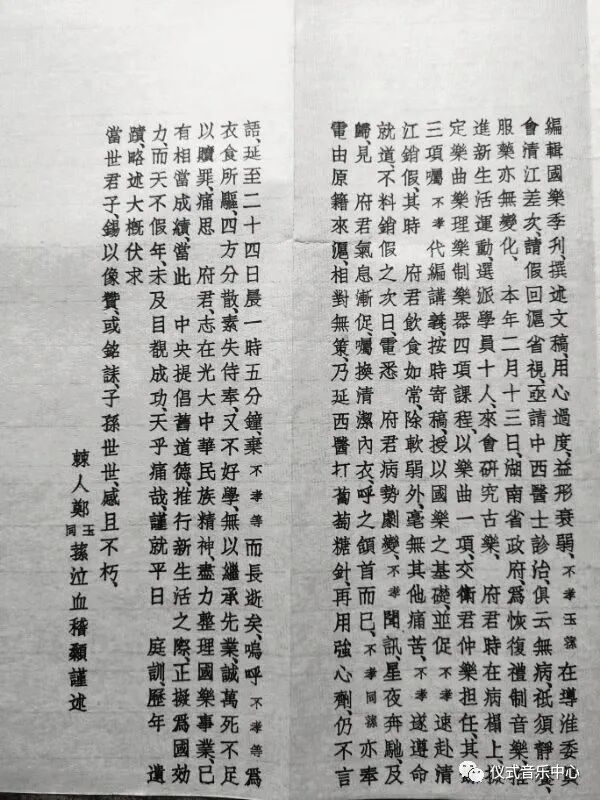 編輯國樂季刊、撰述文稿、用心過度、益形衰弱、不孝玉蓀在導淮委員
會清江差次、請假回滬省視、亟請中西醫士診治、俱云無病、祇須靜養、
服藥亦無變化、 本年二月十三日、湖南省政府、爲恢復禮制音樂、推
進新生活運動、選派學員十人、來會研究古樂、 府君時在病榻上、擬
定樂曲樂理樂制樂器四項課程、以樂曲一項、交衛君仲樂担任、其
三項囑不孝代編講義、按時寄稿、授以國樂之基礎、並促不孝速赴清
江銷假、其時 府君飲食如常、除軟弱外、毫無其他痛苦、不孝遂遵命
就道、不料銷假之次日、電悉 府君病勢劇變、不孝聞訊、星夜奔馳、及
歸、見 府君氣息漸促、囑換清潔內衣、呼之頷首而已、不孝同蓀亦奉
電由原籍來滬、相對無策、乃延西醫打葡萄糖針、再用強心劑、仍不言
語、延至二十四日晨一時五分鐘、棄不孝等而長逝矣、嗚呼不孝等爲
衣食所驅、四方分散、素失侍奉、又不好學、無以繼承先業、誠萬死不足
以贖罪、痛思 府君、志在光大中華民族精神、盡力整理國樂事業、已
有相當成績、當此 中央提倡舊道德、推行新生活之際、正擬爲國效
力、而天不假年、未及目覩成功、天乎痛哉、謹就平日 庭訓、歷年 遺
蹟、略述大概、伏求
當世君子、錫以像贊、或銘誄、子孫世世、感且不朽、
棘人鄭玉同蓀泣血稽顙謹述
仪式音乐中心